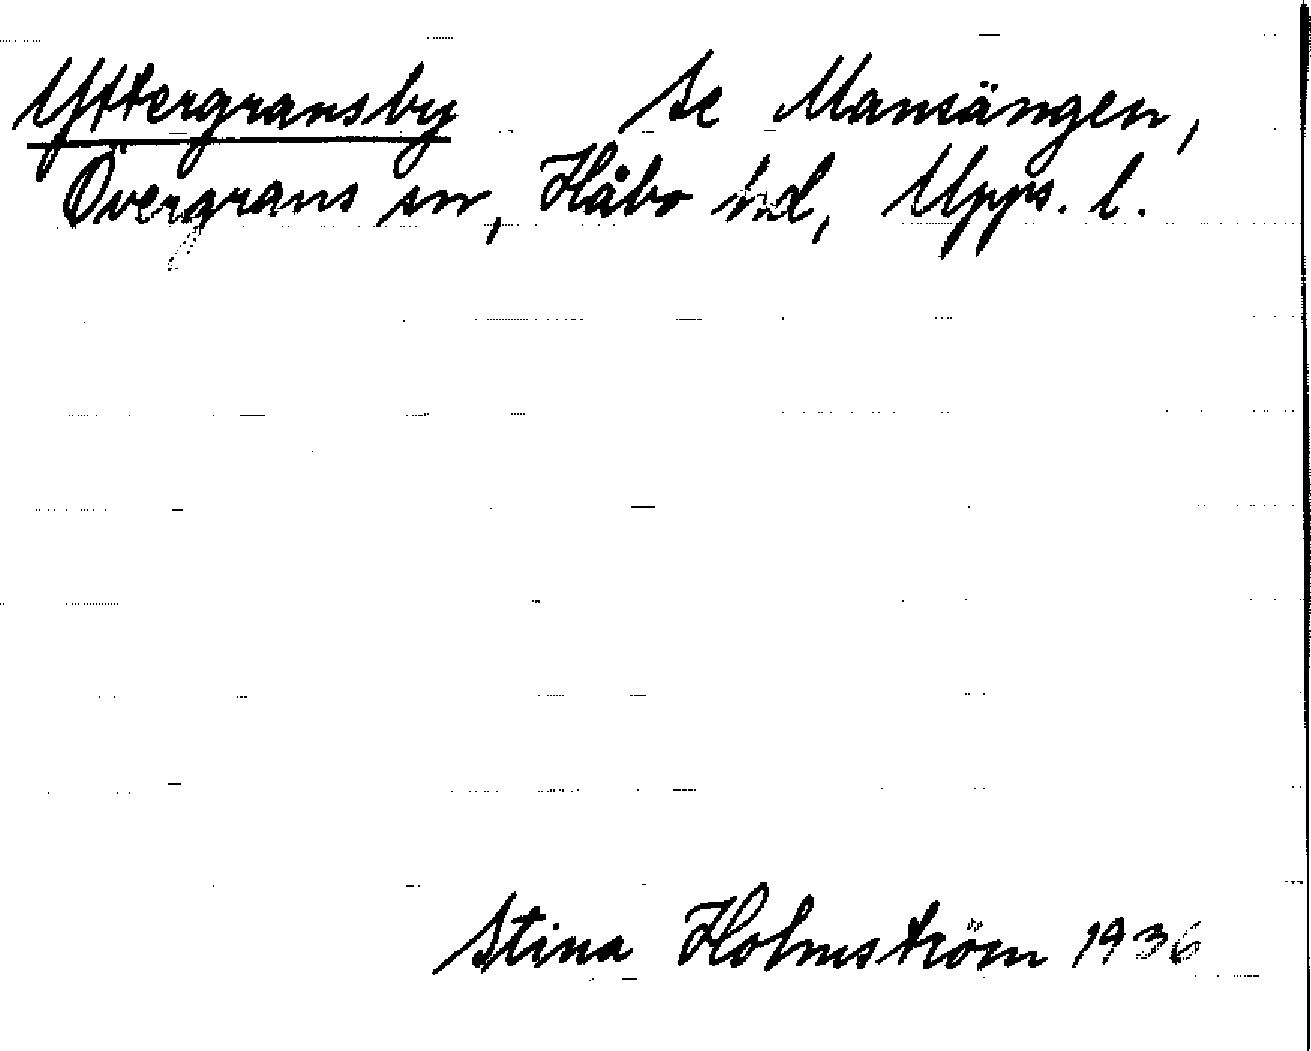 Yttergransby se Mansängen,
Övergrans sn, Håbo hd, Upps. l.
Stina Holmström 1936